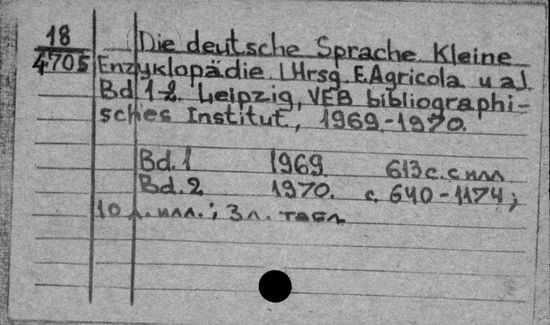 18
4705
Die deutsche Sprache. Kleine
Enzyklopädie. | Hrsg. E. Agricola u al
Bd 1-2. Leipzig, VEB bibliographi-
sches Institut, 1969-1970.
Bd. 1 1969. 613 с. с илл
Bd. 2 1970. с. 640-1174;
10 л. илл.; 3 л. табл